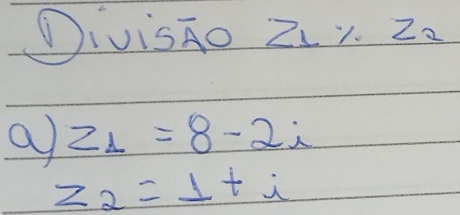 Divisão Z1 ÷ Z2
a) Z1 = 8 - 2i
Z2 = 1 + i